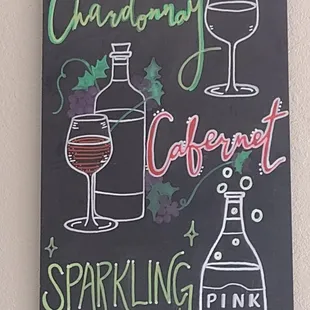 Chardonnay
Cabernet
SPARKLING
PINK